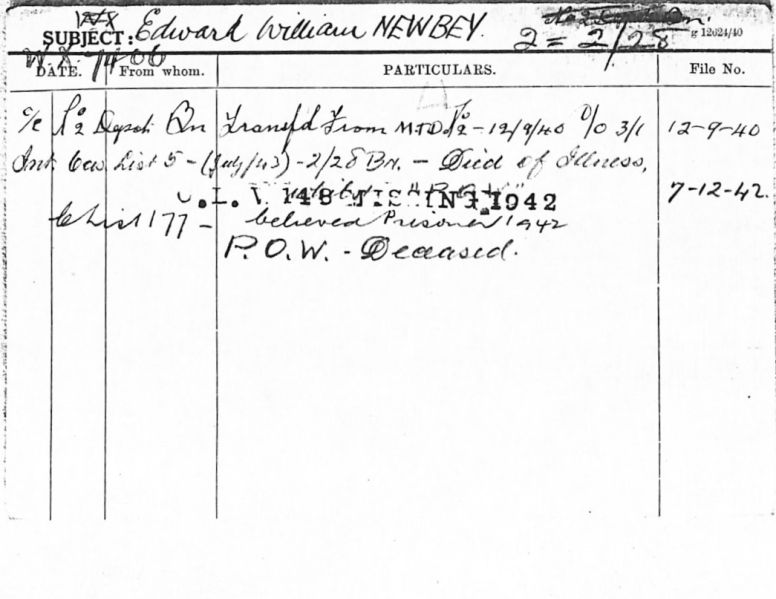 SUBJECT: Edward William NEWBEY.
2 = 2/28 g 12624/40
W.X. 7406
DATE. From whom. PARTICULARS. File No.
No 2 Depot Bn Transf'd From M.T.D. No 2 - 12/9/40 3/1 12-9-40
Cas List 5 - (July/43) - 2/28 Bn. - Died of Illness, 7-12-42.
C.L. V 148 MISSING 1942
C List 177 - believed Prisoner 1942
P.O.W. - Deceased.